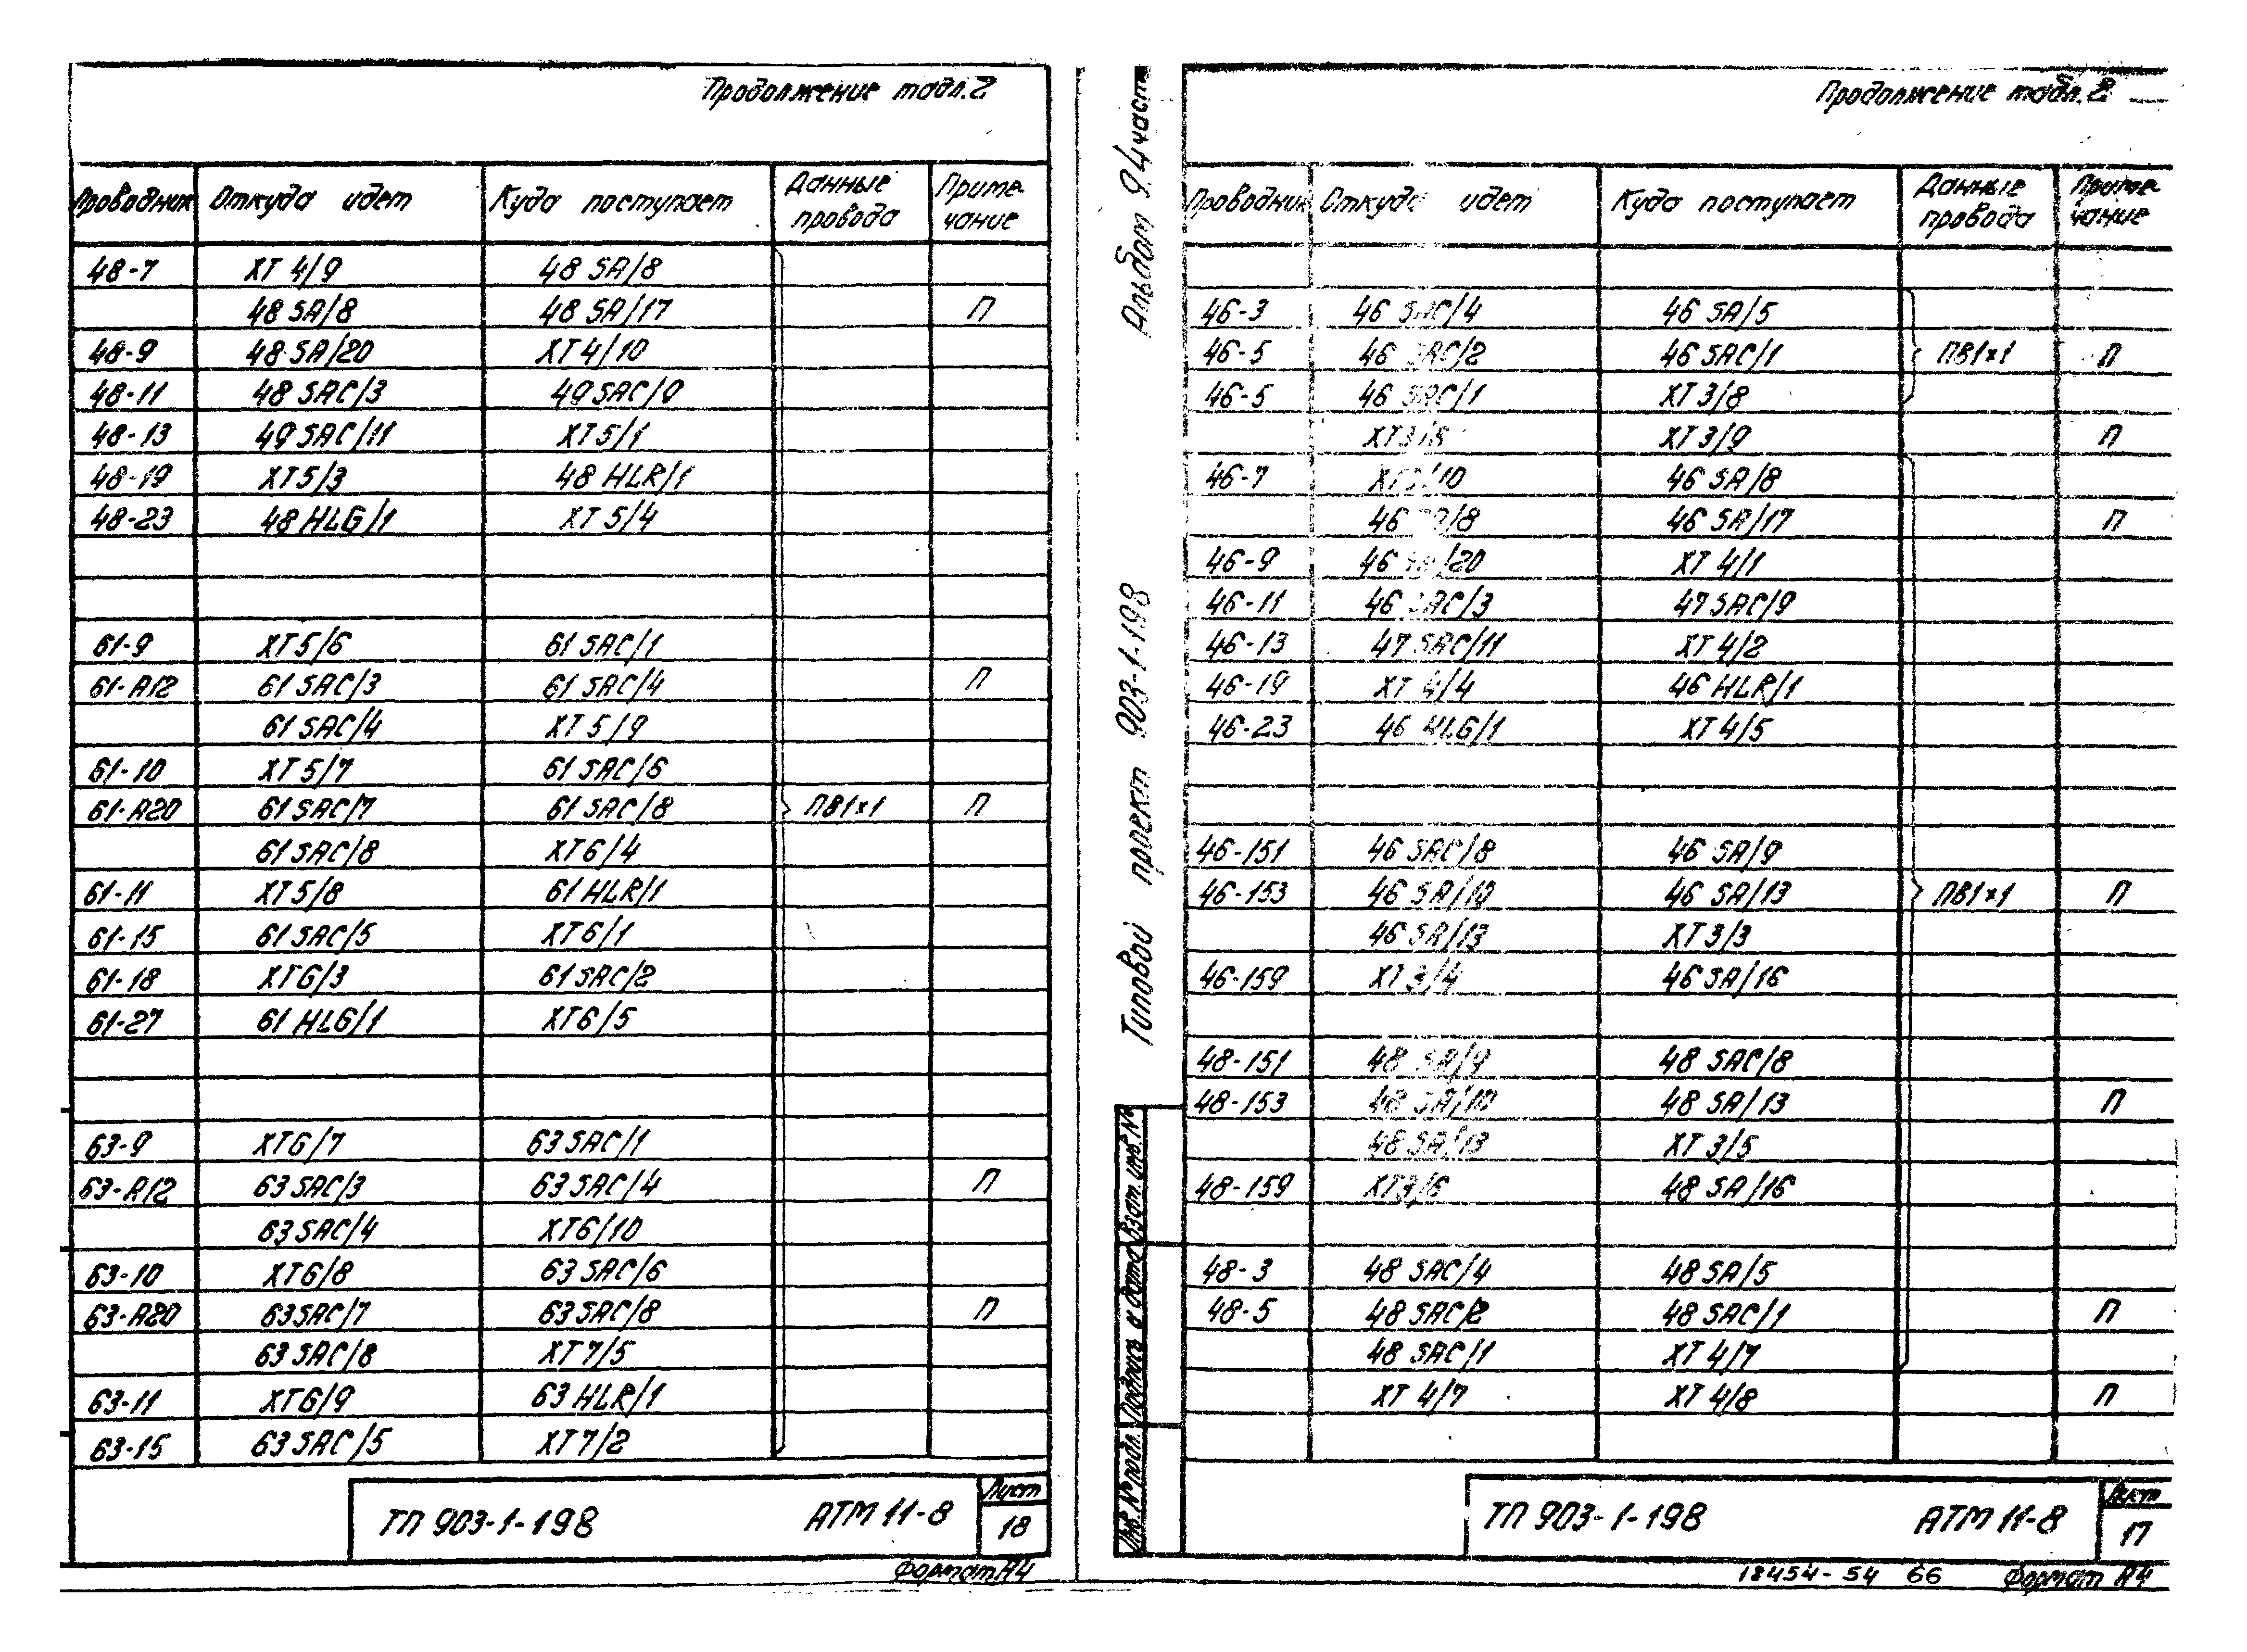 Продолжение табл.2
Проводник Откуда идет Куда поступает Данные провода Приме-чание
48-7 ХТ 4/9 48 SA/8
48 SA/8 48 SA/17 П
48-9 48 SA/20 ХТ 4/10
48-11 48 SAC/3 49 SAC/9
48-13 49 SAC/11 ХТ 5/1
48-19 ХТ 5/3 48 HLR/1
48-23 48 HLG/1 ХТ 5/4
61-9 ХТ 5/6 61 SAC/1
61-А12 61 SAC/3 61 SAC/4 П
61 SAC/4 ХТ 5/9
61-10 ХТ 5/7 61 SAC/6
61-А20 61 SAC/7 61 SAC/8 ПВ1×1 П
61 SAC/8 ХТ6/4
61-11 ХТ 5/8 61 HLR/1
61-15 61 SAC/5 ХТ6/1
61-18 ХТ6/3 61 SAC/2
61-27 61 HLG/1 ХТ6/5
63-9 ХТ6/7 63 SAC/1
63-А12 63 SAC/3 63 SAC/4 П
63 SAC/4 ХТ6/10
63-10 ХТ6/8 63 SAC/6
63-А20 63 SAC/7 63 SAC/8 П
63 SAC/8 ХТ 7/5
63-11 ХТ6/9 63 HLR/1
63-15 63 SAC/5 ХТ 7/2
ТП 903-1-198 АТМ 11-8 Лист
18
Формат А4
Альбом 9.4 част
Типовой проект 903-1-198
Инв.№ подл. Подпись и дата Взам. инв.№
Продолжение табл. 2
Проводник Откуда идет Куда поступает Данные провода Приме-чание
46-3 46 SAC/4 46 SA/5
46-5 46 SAC/2 46 SAC/1 ПВ1×1 П
46-5 46 SAC/1 ХТ 3/8
ХТ3/8 ХТ 3/9 П
46-7 ХТ3/10 46 SA/8
46 SA/8 46 SA/17 П
46-9 46 SA/20 ХТ 4/1
46-11 46 SAC/3 47 SAC/9
46-13 47 SAC/11 ХТ 4/2
46-19 ХТ 4/4 46 HLR/1
46-23 46 HLG/1 ХТ 4/5
46-151 46 SAC/8 46 SA/9
46-153 46 SA/10 46 SA/13 ПВ1×1 П
46 SA/13 ХТ 3/3
46-159 ХТ 3/4 46 SA/16
48-151 48 SA/9 48 SAC/8
48-153 48 SA/10 48 SA/13 П
48 SA/13 ХТ 3/5
48-159 ХТ3/6 48 SA/16
48-3 48 SAC/4 48 SA/5
48-5 48 SAC/2 48 SAC/1 П
48 SAC/1 ХТ 4/7
ХТ 4/7 ХТ 4/8 П
ТП 903-1-198 АТМ 11-8 Лист
17
18454-54 66 Формат А4